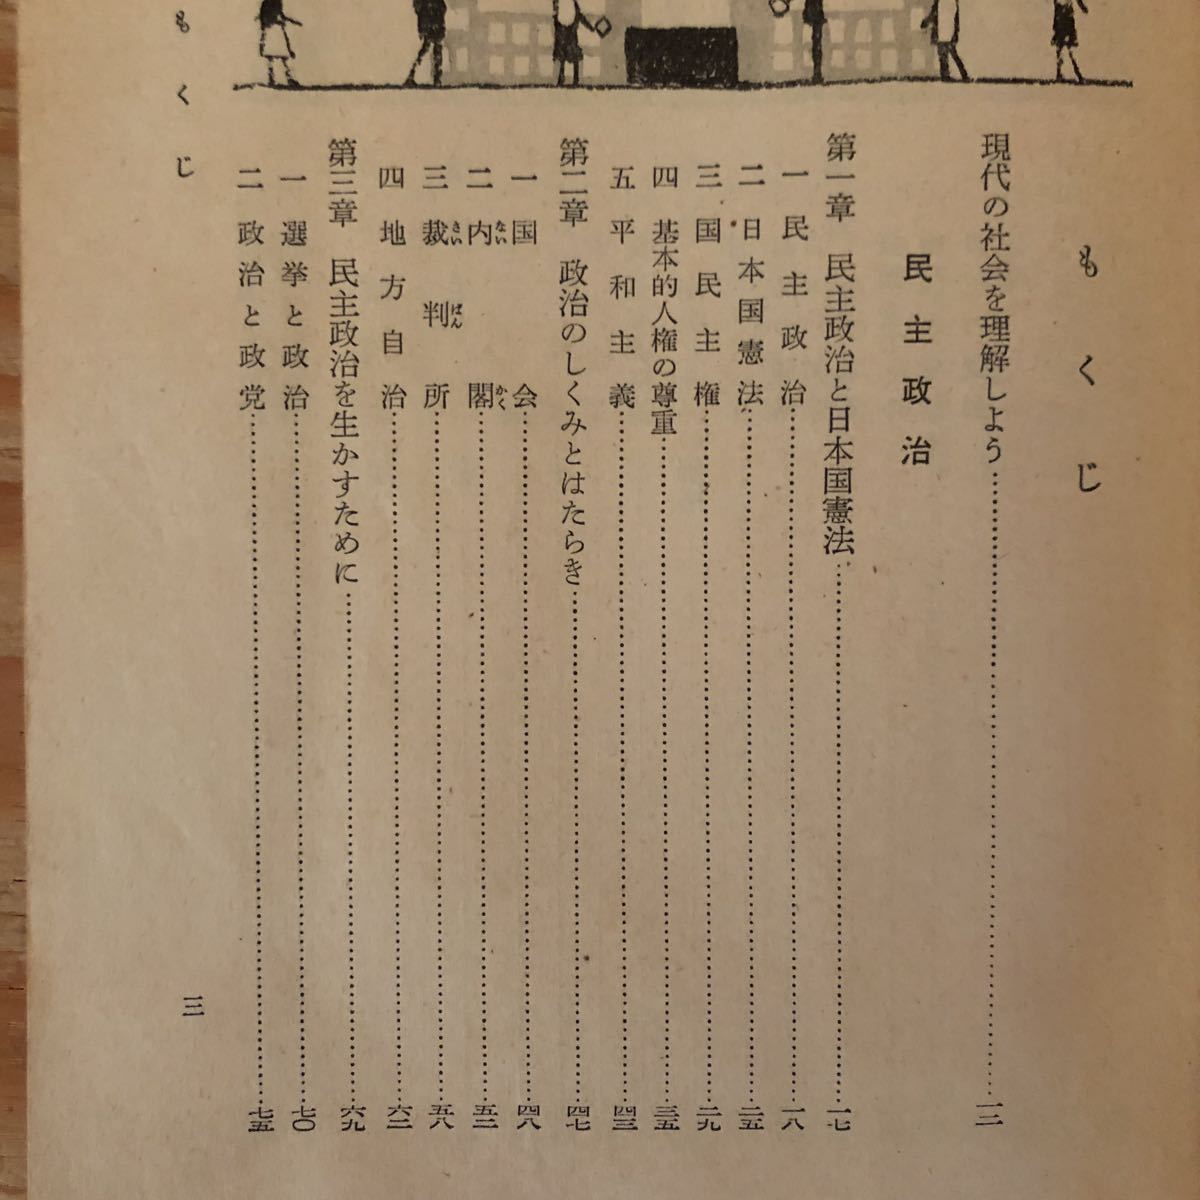 もくじ
現代の社会を理解しよう……一二
民主政治
第一章 民主政治と日本国憲法……一七
一 民主政治……一八
二 日本国憲法……二五
三 国民主権……二九
四 基本的人権の尊重……三五
五 平和主義……四三
第二章 政治のしくみとはたらき……四七
一 国会……四八
二 内閣……五二
ない かく
三 裁判所……五八
さい ばん
四 地方自治……六二
第三章 民主政治を生かすために……六九
一 選挙と政治……七〇
二 政治と政党……七五
もくじ
三